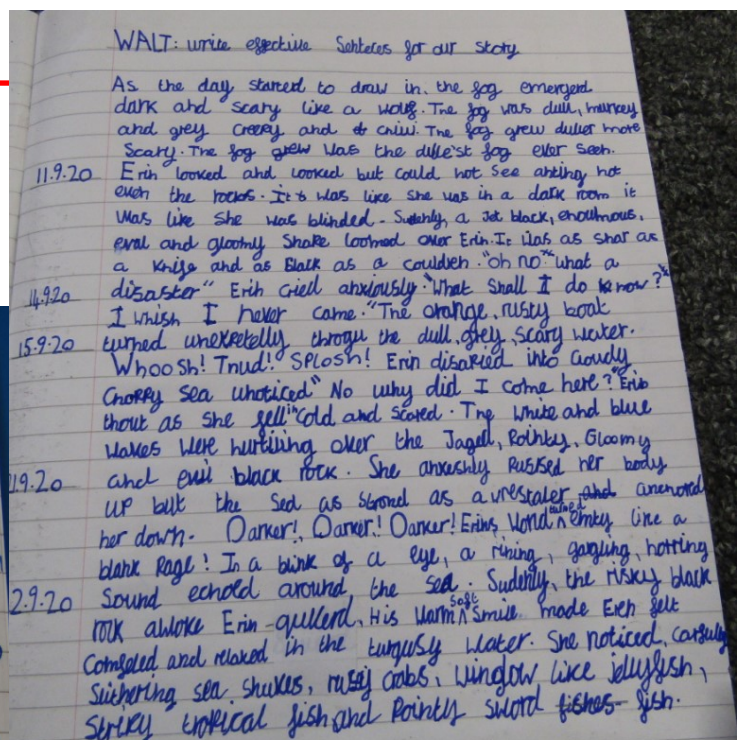 WALT: write effective Senteces for our story
As the day started to draw in, the fog emergerd
dark and scary like a wolf. The fog was dull, murkey
and grey creepy and The fog grew duller more
Scary. The fog grew was the dulle'st fog ever seen.
11.9.20 Erin looked and looked but could not see anting not
even the rocks. It was like she was in a dark room it
was like she was blinded. Sudenly, a Jet black, enoulmous,
eval and gloomy Snake loomed over Erin. It was as shar as
a knife and as Black as a couldren. "oh no" "what a
14.9.20 disaster" Erin cried anxiously. "What shall I do know?"
I whish I never came. "The orange, rusty boat
15.9.20 turned unexpetelly throgu the dull, grey, scary water.
Whoosh! Thud! Splosh! Erin disaried into cloudy
choppy sea unoticed" No why did I come here?" Erin
thout as she fell in cold and scared. The white and blue
waves were hurtiling over the Jaged, Pointy, Gloomy
19.20 and evil black rock. She anxeshly Pussed her body
up but the sea as strond as a wrestaler and anchored
her down. Darker! Darker! Darker! Erins World turned emty like a
blank Page! In a blink of a eye, a rining, gargling, horring
2.9.20 Sound echold around the sea. Sudenly, the risky black
rock awoke Erin His warm soft smile made Erin felt
and relaxed in the turqusy water. She noticed, carfully
Slithering sea snakes, rusty crabs, window like jellyfish,
Stripy tropical fish and Pointy sword fishes fish.